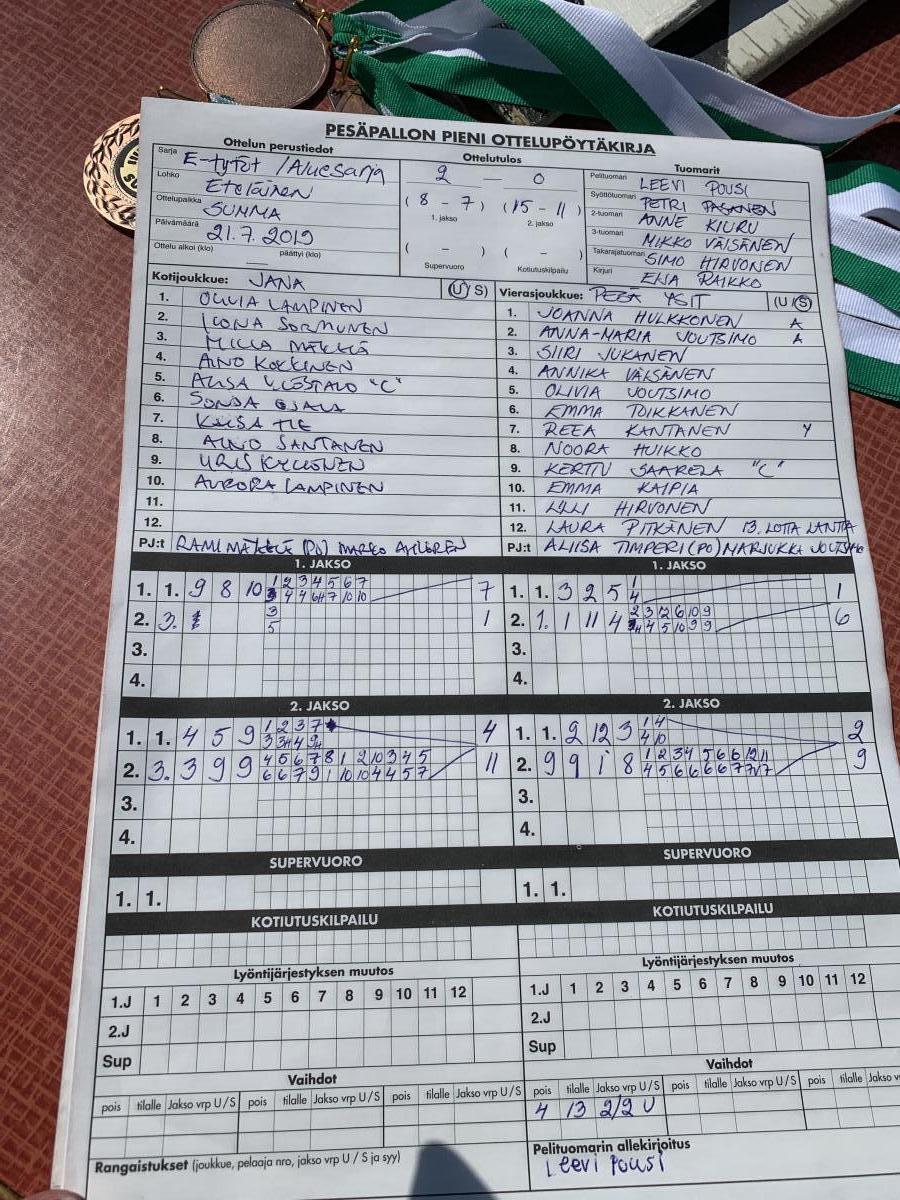 PESÄPALLON PIENI OTTELUPÖYTÄKIRJA
Ottelun perustiedot
Sarja E-tytöt /Aluesarja
Lohko Eteläinen
Ottelupaikka SUMMA
Päivämäärä 21.7.2019
Ottelu alkoi (klo) päättyi (klo)
Ottelutulos
2 — 0
( 8 - 7 ) ( 15 - 11 )
1. jakso 2. jakso
( - ) ( - )
Supervuoro Kotiutuskilpailu
Tuomarit
Pelituomari LEEVI POUSI
Syöttötuomari PETRI PASANEN
2-tuomari ANNE KIURU
3-tuomari MIKKO VÄISÄNEN
Takarajatuomari SIMO HIRVONEN
Kirjuri EIJA RAIKKO
Kotijoukkue: JANA (U/S)
1. OLIVIA LAMPINEN
2. ILONA SORMUNEN
3. MILLA MÄKKIÄ
4. AINO KOKKINEN
5. "C"
6. SONJA OJALA
7. KAISA TIE
8. AINO SANTANEN
9. KYLLÖNEN
10. AURORA LAMPINEN
11.
12.
PJ:t RAMI (PO) MARKO
Vierasjoukkue: PEEÄ YSIT (U/S)
1. JOANNA HULKKONEN A
2. ANNA-MARIA JOUTSIMO A
3. SIIRI JUKANEN
4. ANNIKA VÄISÄNEN
5. OLIVIA JOUTSIMO
6. EMMA TOIKKANEN
7. REEA KANTANEN Y
8. NOORA HUIKKO
9. KERTTU SAARELA "C"
10. EMMA KAIPIA
11. LILLI HIRVONEN
12. LAURA PITKÄNEN 13. LOTTA LANTTA
PJ:t ALIISA TIMPERI (PO) MARJUKKA JOUTSIMO
1. JAKSO
1. 1. 9 8 10 1 2 3 4 5 6 7 7
3 4 4 6 7 10 10
2. 3. 3 1
5
3.
4.
1. JAKSO
1. 1. 3 2 5 1 1
4
2. 1. 1 11 4 2 3 12 6 10 9 6
4 4 5 10 9 9
3.
4.
2. JAKSO
1. 1. 4 5 9 1 2 3 7 4
3 3 4 9
2. 3. 3 9 9 4 5 6 7 8 1 2 10 3 4 5 11
6 6 7 9 1 10 10 4 4 5 7
3.
4.
2. JAKSO
1. 1. 2 12 3 1 4 2
4 10
2. 9 9 1 8 1 2 3 4 5 6 6 12 11 9
4 5 6 6 6 6 7 7
3.
4.
SUPERVUORO
1. 1.
SUPERVUORO
1. 1.
KOTIUTUSKILPAILU
KOTIUTUSKILPAILU
Lyöntijärjestyksen muutos
1.J 1 2 3 4 5 6 7 8 9 10 11 12
2.J
Sup
Lyöntijärjestyksen muutos
1.J 1 2 3 4 5 6 7 8 9 10 11 12
2.J
Sup
Vaihdot
pois tilalle Jakso vrp U/S pois tilalle Jakso vrp U/S pois tilalle Jakso vrp U/S
Vaihdot
pois tilalle Jakso vrp U/S pois tilalle Jakso vrp U/S pois tilalle Jakso v
4 13 2/2 U
Rangaistukset (joukkue, pelaaja nro, jakso vrp U / S ja syy)
Pelituomarin allekirjoitus
Leevi Pousi